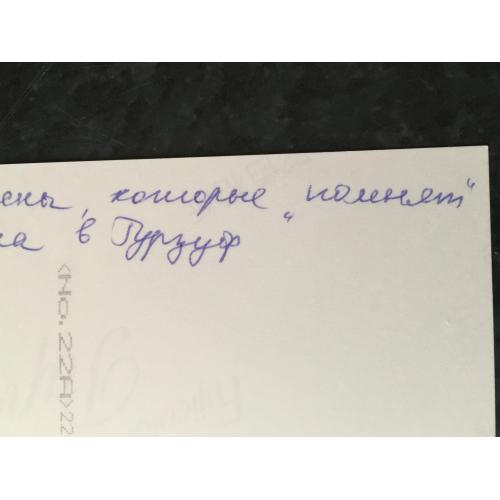 ены, которые "помнят"
на в Гурзуф
<No.22A>22